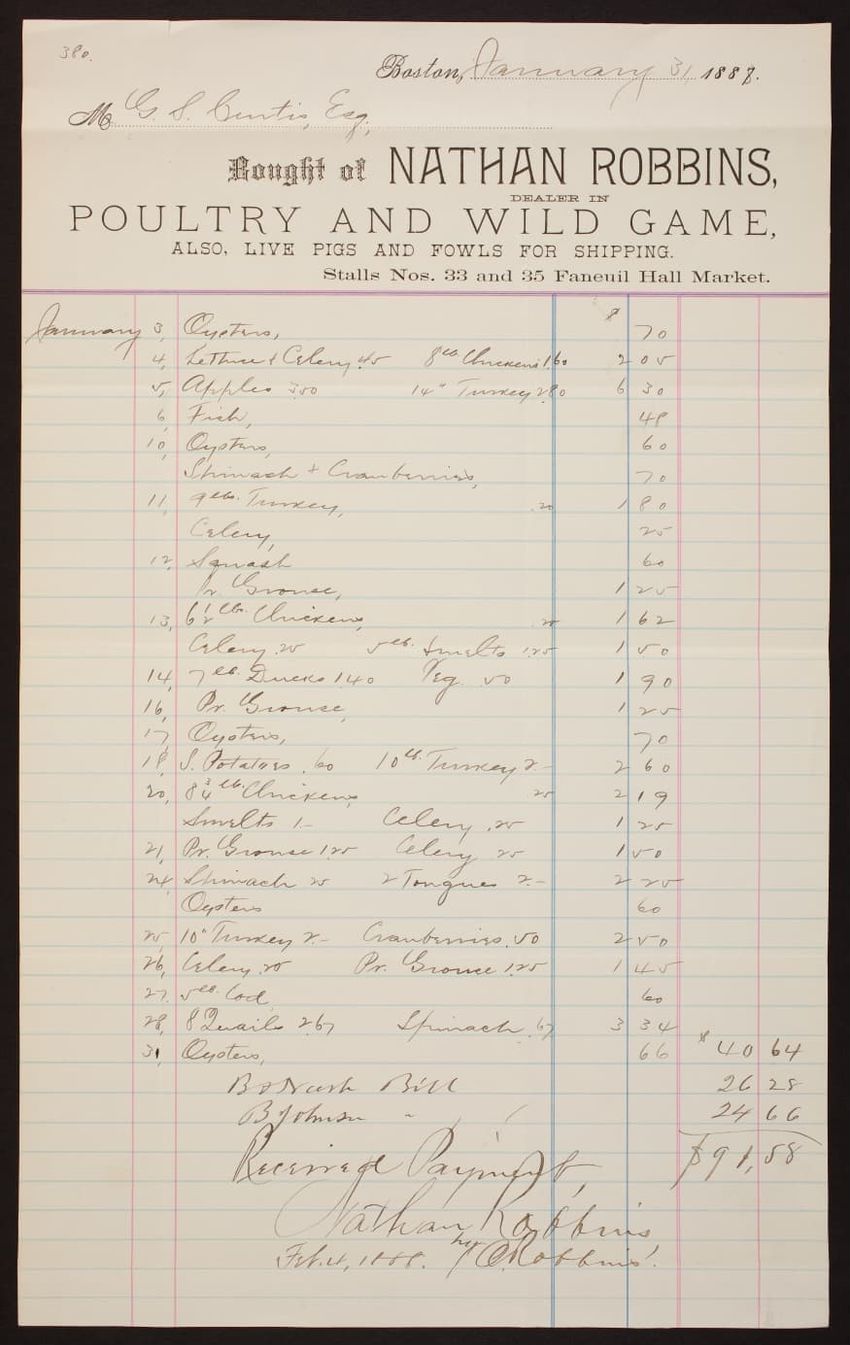 380.
Boston, January 31, 1888.
Mr G. S. Curtis, Esq.,
Bought of NATHAN ROBBINS,
DEALER IN
POULTRY AND WILD GAME,
ALSO, LIVE PIGS AND FOWLS FOR SHIPPING.
Stalls Nos. 33 and 35 Faneuil Hall Market.
January 3, Oysters, $ 70
4, Lettuce & Celery 45 8 lb Chickens 1.60 2 05
5, Apples 350 14 " Turkey 2.80 6 30
6, Fish, 48
10, Oysters, 60
Spinach & Cranberries, 70
11, 9 lbs. Turkey, .20 1 80
Celery, 25
12, Squash 60
Pr Grouse, 1 25
13, 6 1/2 lbs. Chickens, 25 1 62
Celery .25 5 lb. Smelts 1.25 1 50
14, 7 lb Ducks 1.40 Veg. 50 1 90
16, Pr. Grouse, 1 25
17, Oysters, 70
18, S. Potatoes .60 10 lb. Turkey 2.- 2 60
20, 8 3/4 lb Chickens 25 2 19
Smelts 1.- Celery .25 1 25
21, Pr. Grouse 1.25 Celery 25 1 50
24, Spinach 25 2 Tongues 2.- 2 25
Oysters 60
25, 10 " Turkey 2.- Cranberries .50 2 50
26, Celery .20 Pr. Grouse 1.25 1 45
27, 5 lb Cod 60
28, 8 Quails 2.67 Spinach .67 3 34
31, Oysters, 66 $ 40 64
Bill 26 28
B Johnson " 24 66
Received Payment, $91,58
Nathan Robbins
Feb. 4, 1888. by C. Robbins.